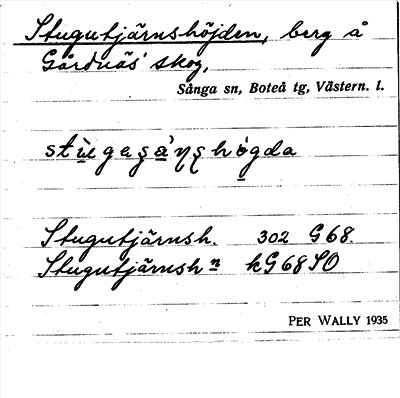 Stugutjärnshöjden, berg å
Gårdnäs skog,
Sånga sn, Boteå tg, Västern. l.
Stugutjärnsh. 302 G68.
Stugutjärnshn kG68SO
PER WALLY 1935